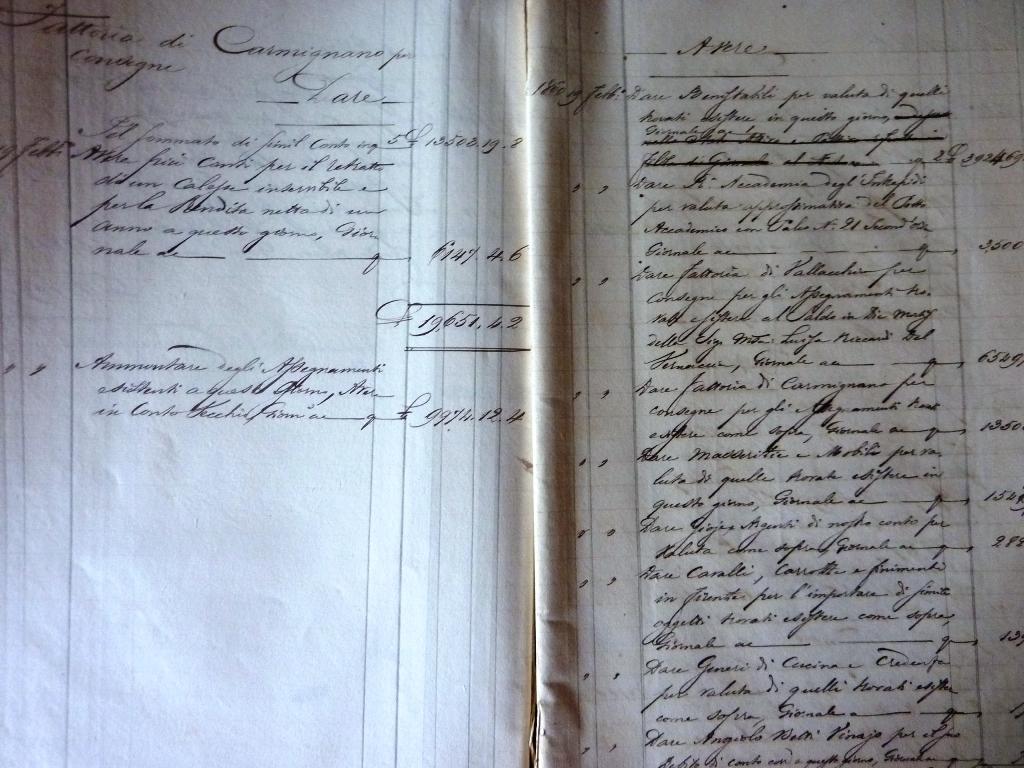 Fattoria di Carmignano per
Consegne
Dare
Pel sommato di simil Conto in 5 £ 13503.19.8
19 Febb. Avere piu Conti per il retratto
di un Calesse inservibile e
per la Rendita netta di un
anno a questo giorno, Gior
nale ac 6147.4.6
£ 19651.4.2
" " Ammontare degli Assegnamenti
esistenti a questo Giorno, Avere
in Conto Vecchio, Giorn. ac £ 9974.12.4
Avere
1860 19 Febb. Dare Benistabili per valuta di quelli
trovati esistere in questo giorno,
Giornale ac
2 £ 392469
" " Dare R. Accademia degl'Intrepidi
per valuta approssimativa del Posto
Accademico in Palco N. 21 Second'Ord.
Giornale ac 3,500
" " Dare Fattoria di Vallacchio per
Consegne per gli Assegnamenti tro
vati esistere al Saldo in Die Morti
della Sig. Luisa Riccardi Del
Vernaccia, Giornale ac 6549,
" " Dare Fattoria di Carmignano per
consegne per gli Assegnamenti trovati
esistere come sopra, Giornale ac 1350
" " Dare Masserizie e Mobili per va
luta di quelle trovate esistere in
questo giorno, Giornale ac 154
" " Dare Gioje e Argenti di nostro conto per
valuta come sopra, Giornale ac 28
" " Dare Cavalli, Carrozze e finimenti
in Firenze per l'importare di simili
oggetti trovati esistere come sopra,
Giornale ac 13
" " Dare Generi di Cucina e Credenza
per valuta di quelli trovati esistere
come sopra, Giornale a
" " Dare Angiolo Vinajo per il suo
Debito di conto cor. a questo giorno, Giornale